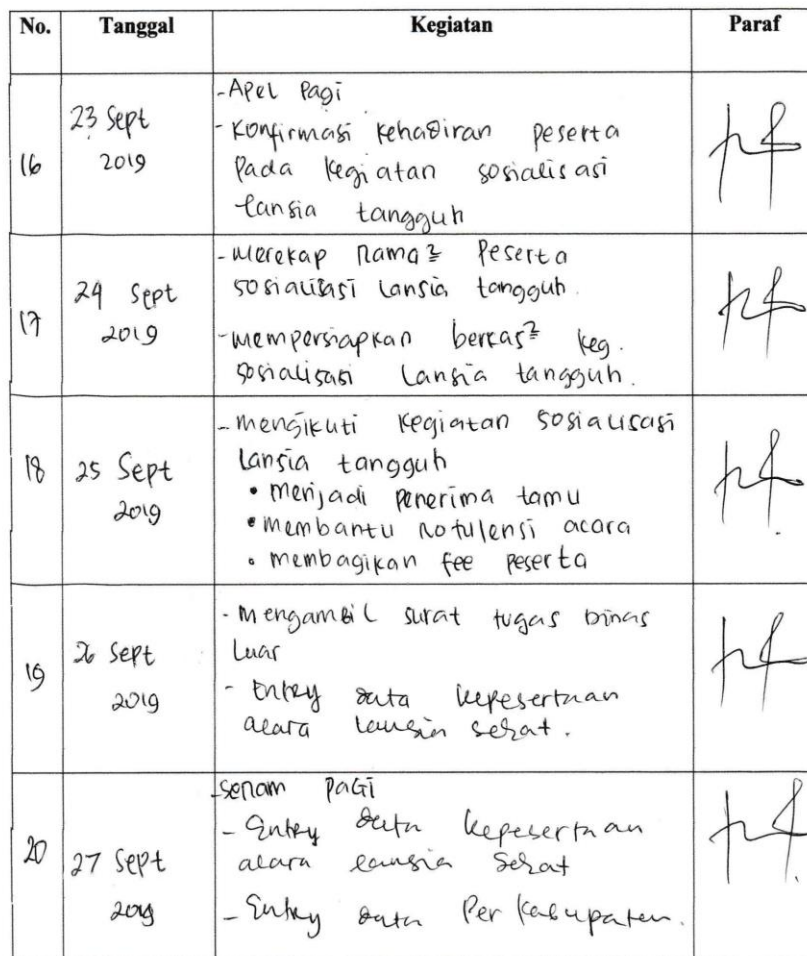 No. Tanggal Kegiatan Paraf
16 23 Sept 2019
-Apel Pagi
- Konfirmasi kehadiran peserta
pada kegiatan sosialisasi
lansia tangguh
17 24 Sept 2019
- Merekap nama² Peserta
sosialisasi lansia tangguh.
- mempersiapkan berkas² keg.
sosialisasi lansia tangguh.
18 25 Sept 2019
- mengikuti kegiatan sosialisasi
lansia tangguh
• menjadi penerima tamu
• membantu notulensi acara
• membagikan fee peserta
19 26 Sept 2019
- Mengambil surat tugas dinas
Luar
- Entry data kepesertaan
acara lansia sehat.
20 27 Sept 2019
-senam PaGi
- Entry data kepesertaan
acara lansia Sehat
- Entry data Per Kabupaten.